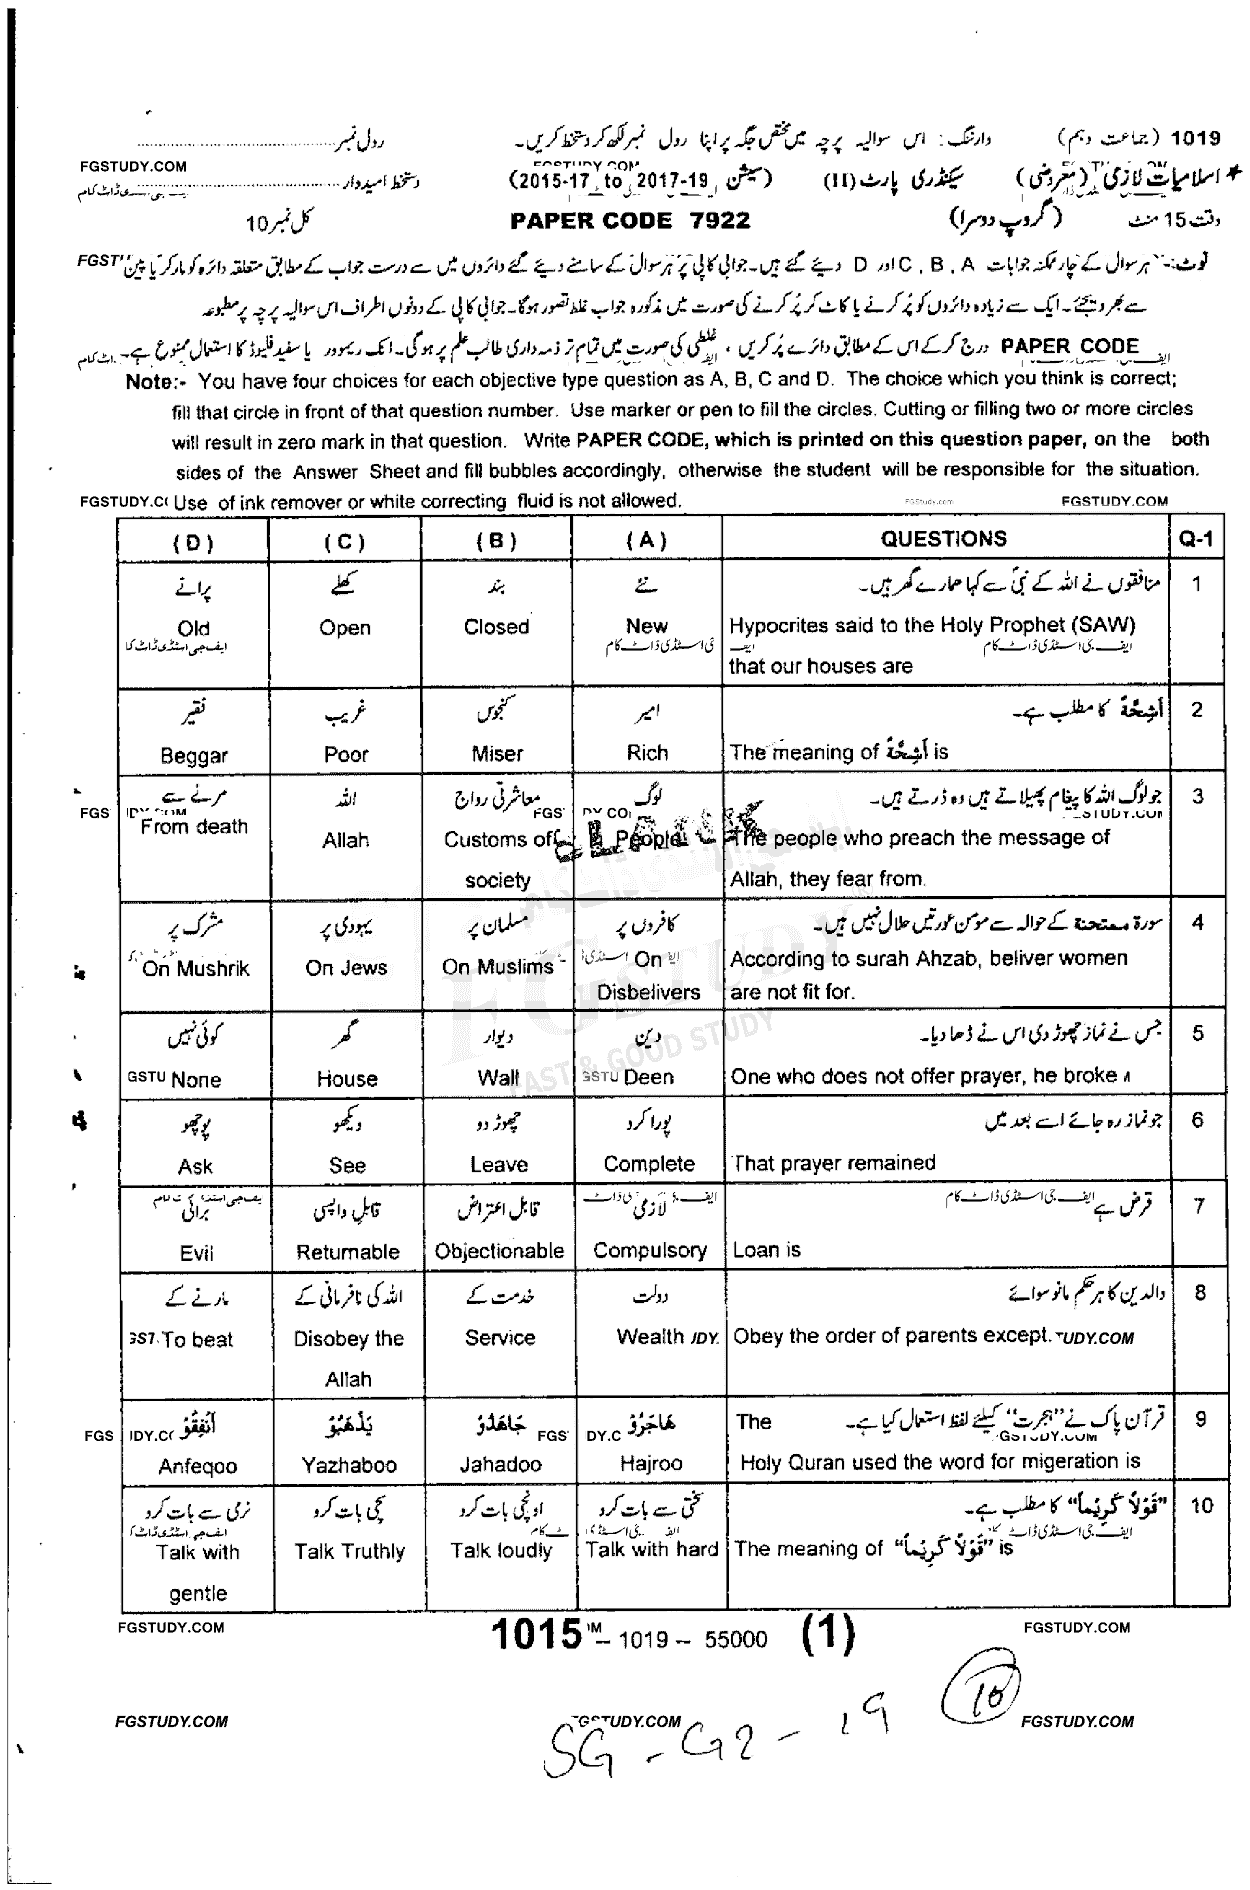 1019 (جماعت دہم) وارننگ: اس سوالیہ پرچہ میں مختص جگہ پر اپنا رول نمبر لکھ کر دستخط کریں۔ رول نمبر
FGSTUDY.COM
اسلامیات لازمی (معروضی) سیکنڈری پارٹ (II) (سیشن 2015-17 to 2017-19) دستخط امیدوار
وقت 15 منٹ (گروپ دوسرا) PAPER CODE 7922 کل نمبر 10
نوٹ:- ہر سوال کے چار ممکنہ جوابات A ، B ، C اور D دیئے گئے ہیں۔ جوابی کاپی پر ہر سوال کے سامنے دیئے گئے دائروں میں سے درست جواب کے مطابق متعلقہ دائرہ کو مارکر یا پین
سے بھر دیجئے۔ ایک سے زیادہ دائروں کو پُر کرنے یا کاٹ کر پُر کرنے کی صورت میں مذکورہ جواب غلط تصور ہوگا۔ جوابی کاپی کے دونوں اطراف اس سوالیہ پرچہ پر مطبوعہ
PAPER CODE درج کر کے اس کے مطابق دائرے پُر کریں ، غلطی کی صورت میں تمام تر ذمہ داری طالب علم پر ہوگی۔ انک ریموور یا سفید فلیوڈ کا استعمال ممنوع ہے۔
Note:- You have four choices for each objective type question as A, B, C and D. The choice which you think is correct;
fill that circle in front of that question number. Use marker or pen to fill the circles. Cutting or filling two or more circles
will result in zero mark in that question. Write PAPER CODE, which is printed on this question paper, on the both
sides of the Answer Sheet and fill bubbles accordingly, otherwise the student will be responsible for the situation.
Use of ink remover or white correcting fluid is not allowed.
FGSTUDY.COM
(D) (C) (B) (A) QUESTIONS Q-1
پرانے کھلے بند نئے منافقوں نے اللہ کے نبیؐ سے کہا ہمارے گھر ہیں۔ 1
Old Open Closed New Hypocrites said to the Holy Prophet (SAW)
that our houses are
فقیر غریب کنجوس امیر اَشِحَّةً کا مطلب ہے۔ 2
Beggar Poor Miser Rich The meaning of اَشِحَّةً is
مرنے سے اللہ معاشرتی رواج لوگ جو لوگ اللہ کا پیغام پھیلاتے ہیں وہ ڈرتے ہیں۔ 3
From death Allah Customs of People The people who preach the message of
BLANK
society Allah, they fear from.
مشرک پر یہودی پر مسلمان پر کافروں پر سورة ممتحنة کے حوالہ سے مومن عورتیں حلال نہیں ہیں۔ 4
On Mushrik On Jews On Muslims On According to surah Ahzab, beliver women
Disbelivers are not fit for.
FGSTUDY
FAST & GOOD STUDY
کوئی نہیں گھر دیوار دین جس نے نماز چھوڑ دی اس نے ڈھا دیا۔ 5
None House Wall Deen One who does not offer prayer, he broke
پوچھو دیکھو چھوڑ دو پورا کرو جو نماز رہ جائے اسے بعد میں 6
Ask See Leave Complete That prayer remained
برائی قابل واپسی قابل اعتراض لازمی قرض ہے 7
Evil Returnable Objectionable Compulsory Loan is
مارنے کے اللہ کی نافرمانی کے خدمت کے دولت والدین کا ہر حکم مانو سوائے 8
To beat Disobey the Service Wealth Obey the order of parents except.
Allah
اَنْفِقُوْ یَذْهَبُوْ جَاهَدُوْ هَاجَرُوْ قرآن پاک نے "ہجرت" کیلئے لفظ استعمال کیا ہے۔ The 9
Anfeqoo Yazhaboo Jahadoo Hajroo Holy Quran used the word for migeration is
نرمی سے بات کرو سچی بات کرو اونچی بات کرو سختی سے بات کرو "قَوْلاً كَرِيْماً" کا مطلب ہے۔ 10
Talk with Talk Truthly Talk loudly Talk with hard The meaning of "قَوْلاً كَرِيْماً" is
gentle
FGSTUDY.COM 1015 TM – 1019 – 55000 (1) FGSTUDY.COM
10
FGSTUDY.COM FGSTUDY.COM FGSTUDY.COM
SG - G2 - 19